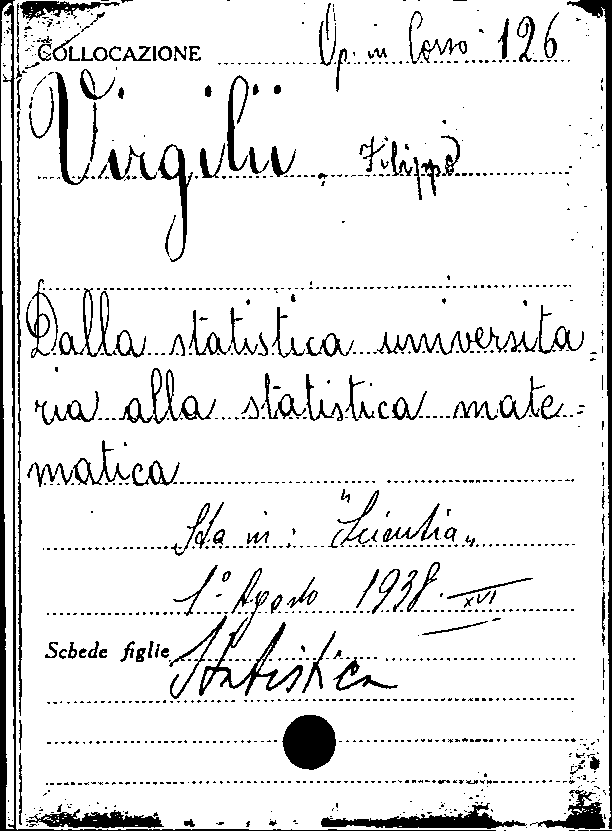 COLLOCAZIONE Op. in Corso 126
Virgilii, Filippo
Dalla statistica universita-
ria alla statistica mate=
matica
Sta in: "Scientia"
1º Agosto 1938. XVI
Schede figlie Statistica